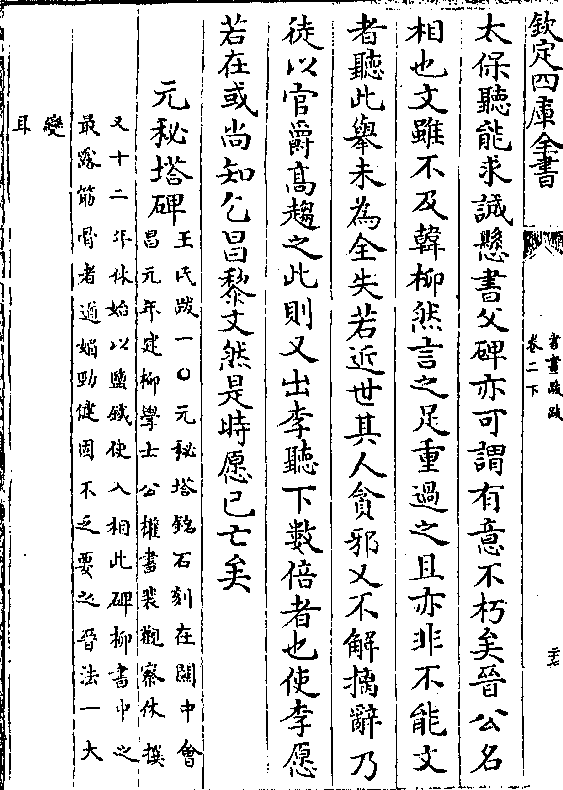 欽定四庫全書
書畫跋跋
卷二下
太保聽能求誠懸書父碑亦可謂有意不朽矣晉公名
相也文雖不及韓柳然言之足重過之且亦非不能文
者聽此舉未為全失若近世其人貪邪又不解摛辭乃
徒以官爵髙趨之此則又出李聽下數倍者也使李愿
若在或尚知乞昌黎文然是時愿已亡矣
元秘塔碑
王氏跋一〇元秘塔銘石刻在關中會
昌元年建柳學士公權書裴觀察休撰
又十二年休始以鹽鐵使入相此碑柳書中之
最露筋骨者遒媚勁健固不乏要之晉法一大
變
耳